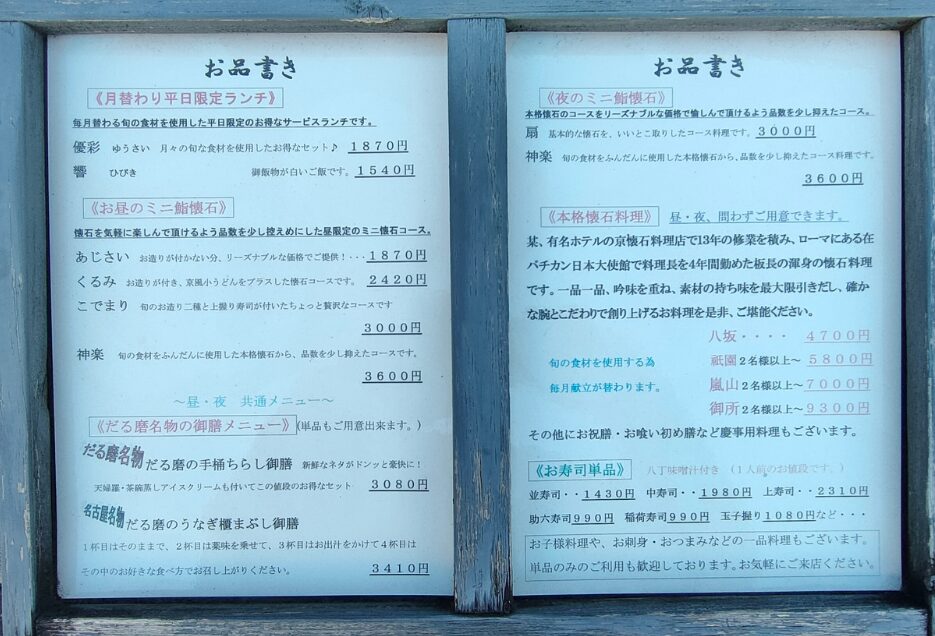 お品書き
《月替わり平日限定ランチ》
毎月替わる旬の食材を使用した平日限定のお得なサービスランチです。
優彩 ゆうさい 月々の旬な食材を使用したお得なセット♪ 1870円
響 ひびき 御飯物が白いご飯です。1540円
《お昼のミニ鮨懐石》
懐石を気軽に楽しんで頂けるよう品数を少し控えめにした昼限定のミニ懐石コース。
あじさい お造りが付かない分、リーズナブルな価格でご提供！・・・1870円
くるみ お造りが付き、京風小うどんをプラスした懐石コースです。 2420円
こでまり 旬のお造り二種と上握り寿司が付いたちょっと贅沢なコースです
3000円
神楽 旬の食材をふんだんに使用した本格懐石から、品数を少し抑えたコースです。
3600円
～昼・夜 共通メニュー～
《だる磨名物の御膳メニュー》(単品もご用意出来ます。)
だる磨名物 だる磨の手桶ちらし御膳 新鮮なネタがドンッと豪快に！
天婦羅・茶碗蒸しアイスクリームも付いてこの値段のお得なセット 3080円
名古屋名物 だる磨のうなぎ櫃まぶし御膳
1杯目はそのままで、2杯目は薬味を乗せて、3杯目はお出汁をかけて4杯目は
その中のお好きな食べ方でお召し上がりください。 3410円
お品書き
《夜のミニ鮨懐石》
本格懐石のコースをリーズナブルな価格で愉しんで頂けるよう品数を少し抑えたコース。
扇 基本的な懐石を、いいとこ取りしたコース料理です。3000円
神楽 旬の食材をふんだんに使用した本格懐石から、品数を少し抑えたコース料理です。
3600円
《本格懐石料理》 昼・夜、問わずご用意できます。
某、有名ホテルの京懐石料理店で13年の修業を積み、ローマにある在
バチカン日本大使館で料理長を4年間勤めた板長の渾身の懐石料理
です。一品一品、吟味を重ね、素材の持ち味を最大限引きだし、確か
な腕とこだわりで創り上げるお料理を是非、ご堪能ください。
八坂・・・・ 4700円
旬の食材を使用する為 祇園2名様以上～ 5800円
毎月献立が替わります。 嵐山2名様以上～7000円
御所2名様以上～9300円
その他にお祝膳・お喰い初め膳など慶事用料理もございます。
《お寿司単品》 八丁味噌汁付き（1人前のお値段です。）
並寿司・・1430円 中寿司・・1980円 上寿司・・2310円
助六寿司990円 稲荷寿司990円 玉子握り1080円など・・・
お子様料理や、お刺身・おつまみなどの一品料理もございます。
単品のみのご利用も歓迎しております。お気軽にご来店ください。